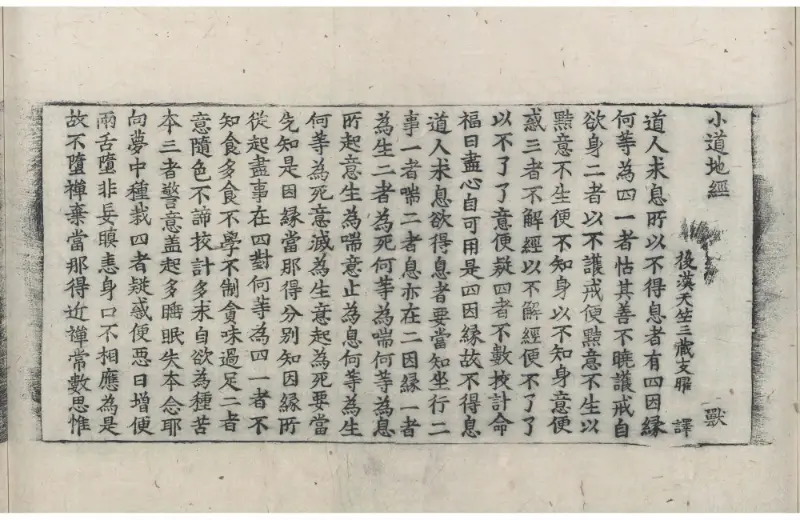 小道地經
獸
後漢天竺三藏支曜
譯
道人求息所以不得息者有四因緣
何等為四一者怙其善不曉護戒自
欲身二者以不護戒便黠意不生以
黠意不生便不知身以不知身意便
惑三者不解經以不解經便不了了
以不了了意便疑四者不數挍計命
福日盡心自可用是四因緣故不得息
道人求息欲得息者要當知坐行二
事一者喘二者息亦在二因緣一者
為生二者為死何等為喘何等為息
所起意生為喘意止為息何等為生
何等為死意滅為生意起為死要當
先知是因緣當那得分別知因緣所
從起盡事在四對何等為四一者不
知食多食不學不制貪味過足二者
意隨色不諦挍計多求自欲為種苦
本三者警意蓋起多睡眠失本念耶
向夢中種栽四者疑惑便惡日增便
兩舌墮非妄瞋恚身口不相應為是
故不墮禪棄當那得近禪常數思惟